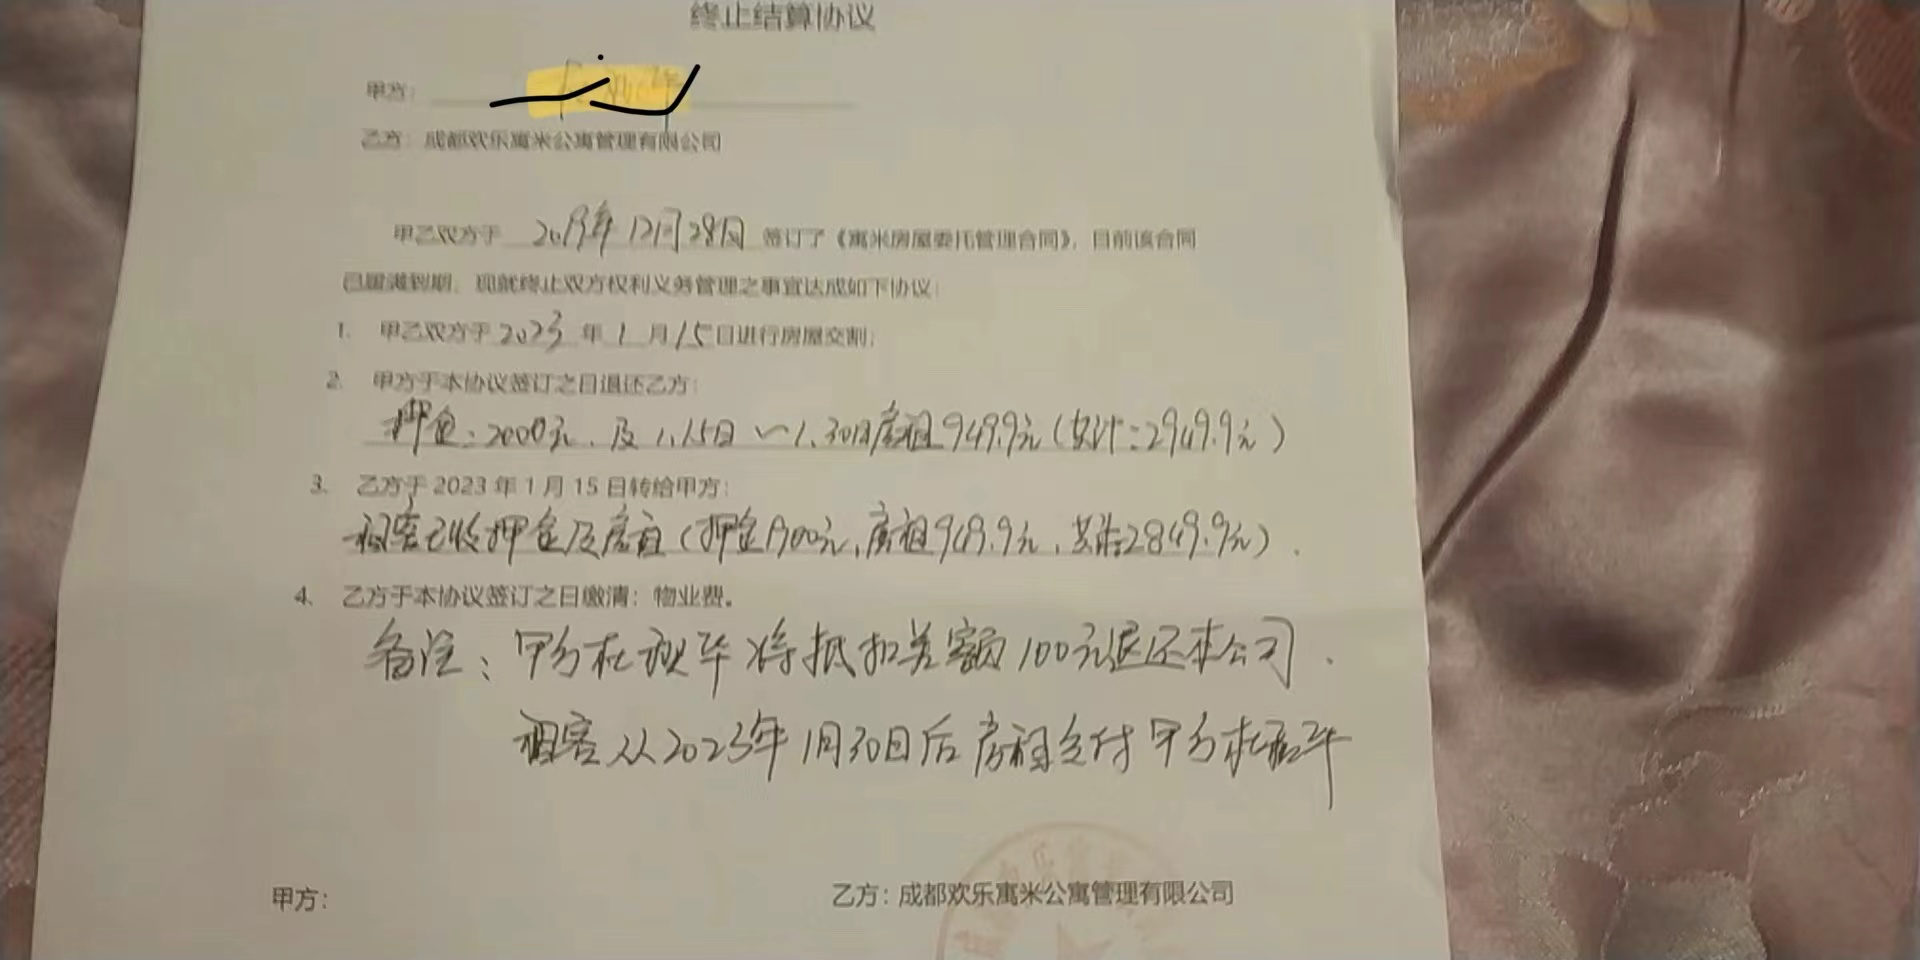 终止结算协议
甲方：
乙方：成都欢乐寓米公寓管理有限公司
甲乙双方于 2019年12月28日 签订了《寓米房屋委托管理合同》，目前该合同
已届满到期，现就终止双方权利义务管理之事宜达成如下协议：
1. 甲乙双方于 2023 年 1 月 15 日进行房屋交割；
2. 甲方于本协议签订之日退还乙方：
押金：2000元、及1.15日～1.30日房租949.9元（共计：2949.9元）
3. 乙方于 2023 年 1 月 15 日转给甲方：
租客已收押金及房租（押金1900元，房租949.9元，共计2849.9元）.
4. 乙方于本协议签订之日缴清：物业费。
备注：甲方杜 将抵扣差额100元退还本公司.
租客从2023年1月30日后房租交付甲方杜
甲方：
乙方：成都欢乐寓米公寓管理有限公司